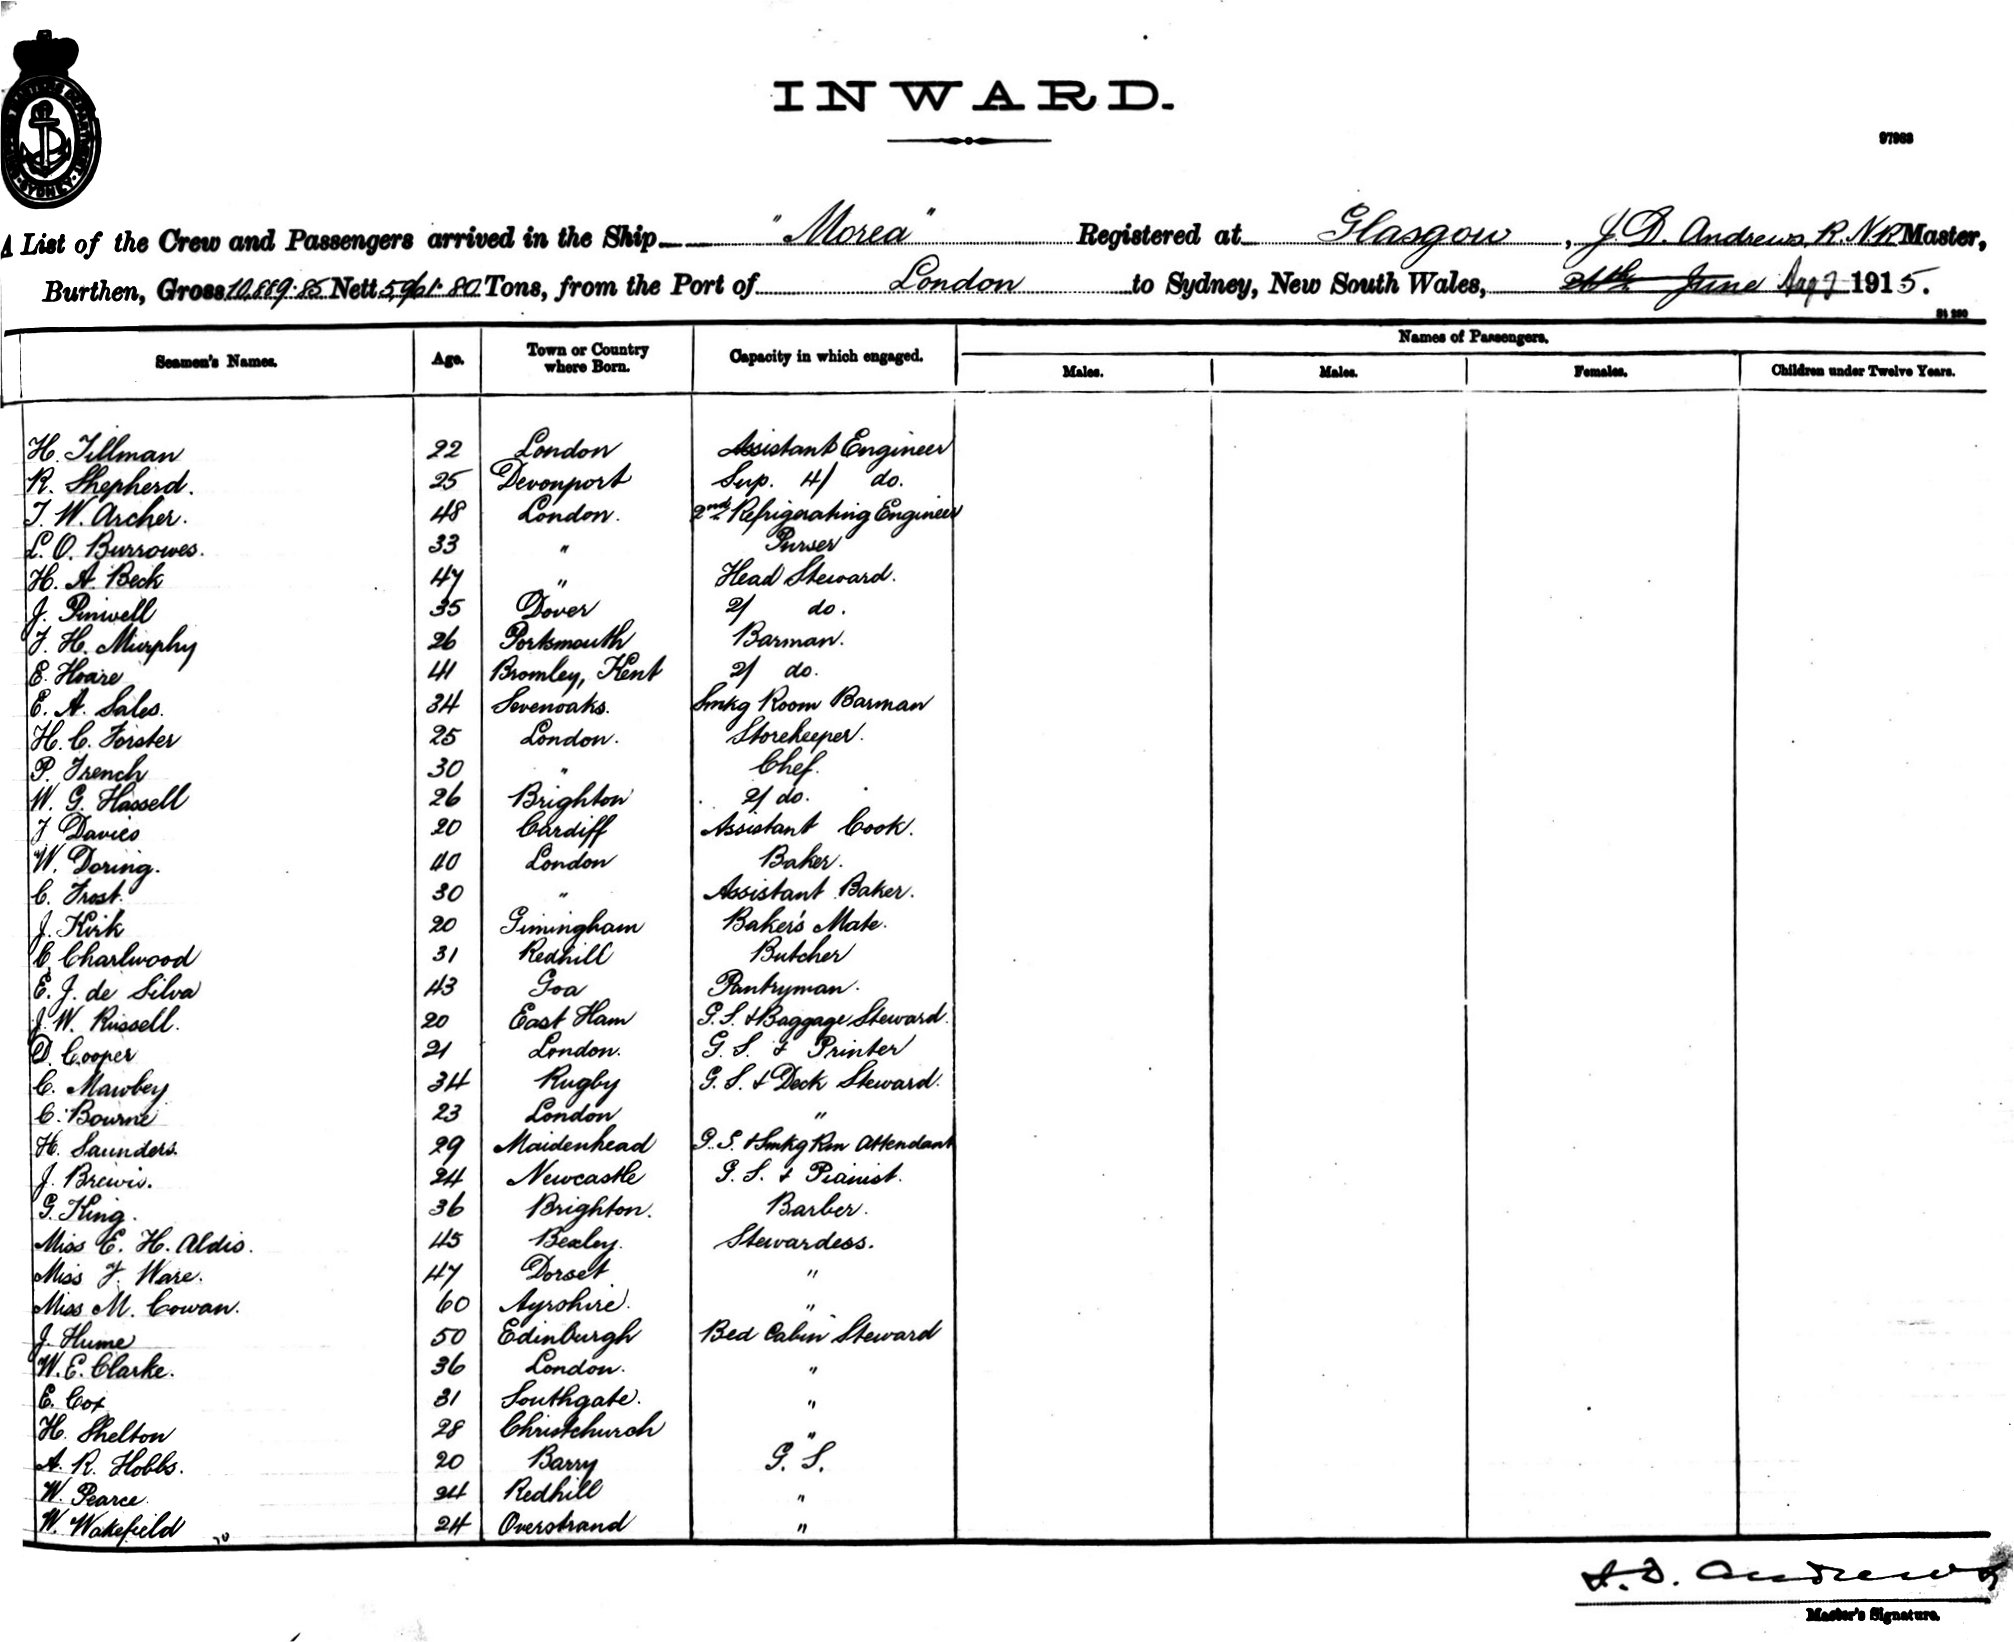 INWARD.
97963
A List of the Crew and Passengers arrived in the Ship "Morea" Registered at Glasgow, J. D. Andrews, R.N.R. Master,
Burthen, Gross 10,889.85 Nett 5961.80 Tons, from the Port of London to Sydney, New South Wales, June Aug 7 1915.
Names of Passengers.
Seamen's Names. Age. Town or Country where Born. Capacity in which engaged. Males. Males. Females. Children under Twelve Years.
H. Tillman 22 London Assistant Engineer
R. Shepherd. 25 Devonport Sup. 4/ do.
T. W. Archer. 48 London. 2nd Refrigerating Engineer
L. O. Burrowes. 33 " Purser
H. A. Beck 47 " Head Steward.
J. Pinwell 35 Dover 2/ do.
J. H. Murphy 26 Portsmouth Barman.
E. Hoare 41 Bromley, Kent 2/ do.
E. A. Sales. 34 Sevenoaks. Smkg Room Barman
H. C. Forster 25 London. Storekeeper.
P. French 30 " Chef.
W. G. Hassell 26 Brighton 2/ do.
J Davies 20 Cardiff Assistant Cook.
W. Doring. 40 London Baker.
C. Frost. 30 " Assistant Baker.
J. Kirk 20 Gimingham Baker's Mate.
C Charlwood 31 Redhill Butcher
E. J. de Silva 43 Goa Pantryman.
J. W. Russell. 20 East Ham G. S. & Baggage Steward.
D. Cooper 21 London. G. S. & Printer
C. Mawbey 34 Rugby G. S. & Deck Steward.
C. Bourne 23 London "
H. Saunders. 29 Maidenhead G. S. & Smkg Rm Attendant
J. Brewis. 24 Newcastle G. S. & Pianist.
G. King. 36 Brighton. Barber.
Miss E. H. Aldis. 45 Bexley. Stewardess.
Miss J. Ware. 47 Dorset "
Miss M. Cowan. 60 Ayrshire. "
J. Hume 50 Edinburgh Bed Cabin Steward
W. E. Clarke. 36 London. "
E. Cox 31 Southgate. "
H. Shelton 28 Christchurch "
A. R. Hobbs. 20 Barry G. S.
W. Pearce. 24 Redhill "
W. Wakefield 24 Overstrand "
J. D. Andrews
Master's Signature.